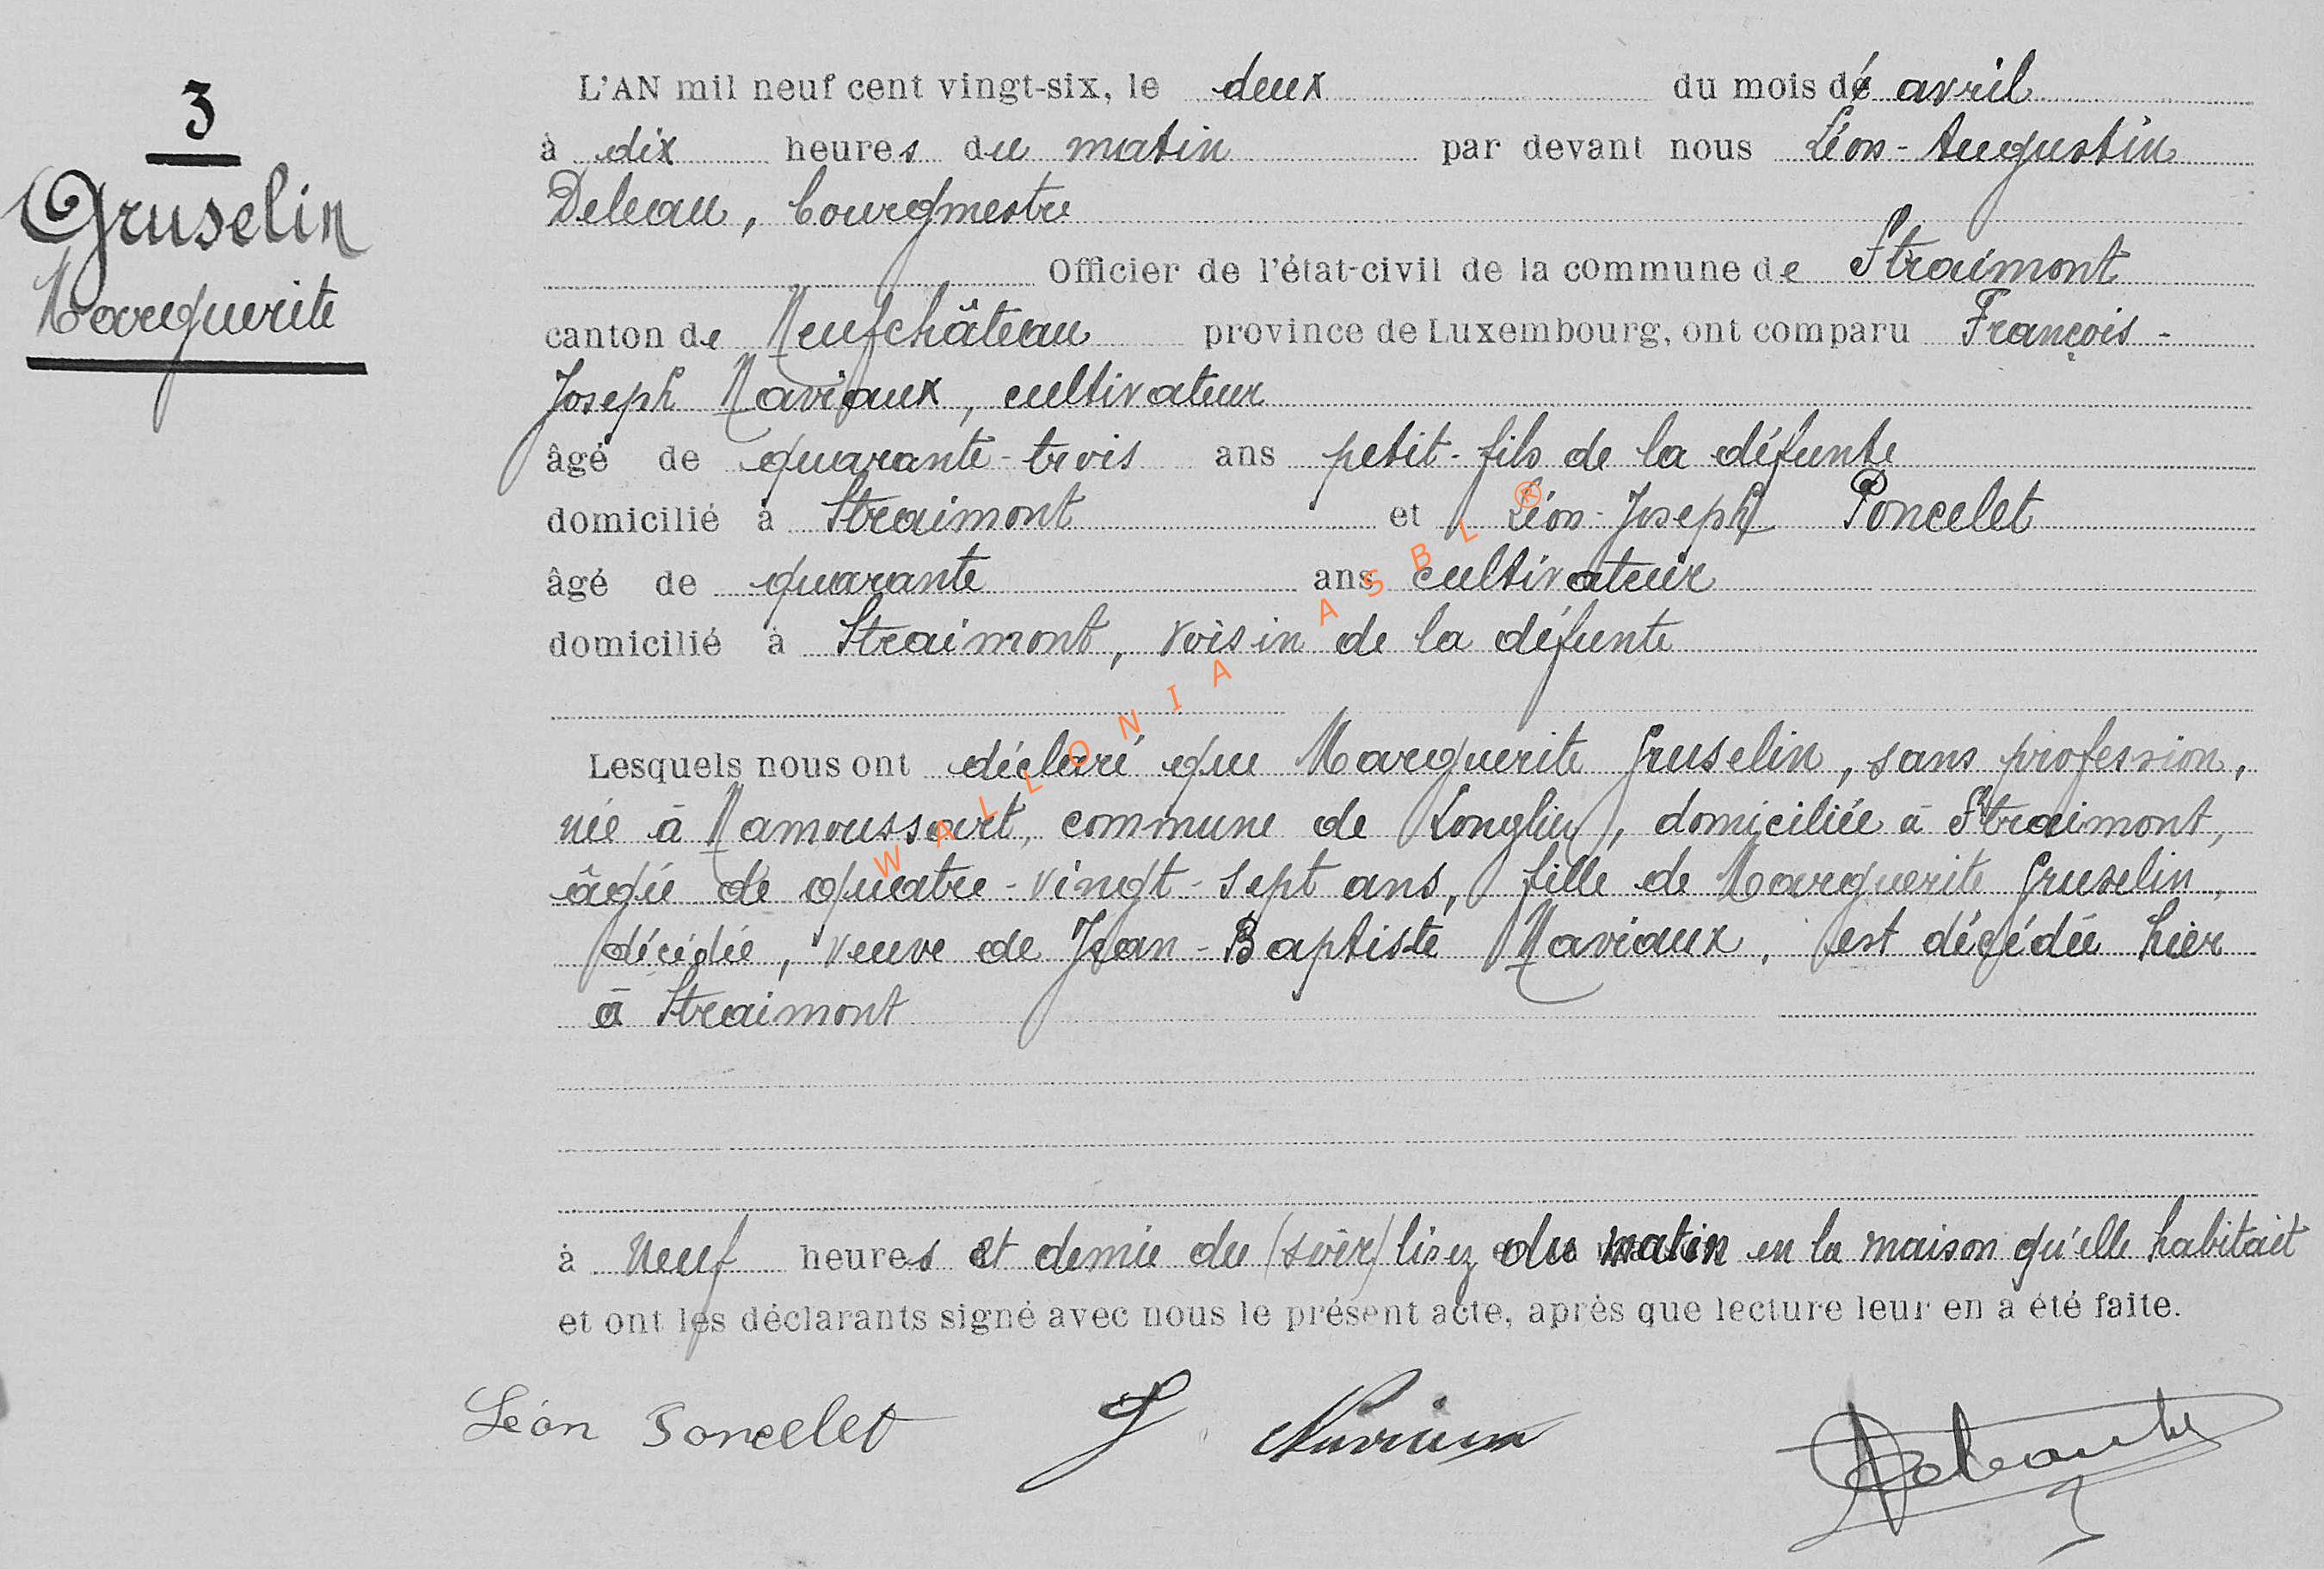 3
Gruselin
Marguerite
L'AN mil neuf cent vingt-six, le deux du mois de avril
à dix heures du matin par devant nous Léon-Augustin
Deleau, bourgmestre
Officier de l'état-civil de la commune de Straimont
canton de Neufchâteau province de Luxembourg, ont comparu François-
Joseph Naviaux, cultivateur
âgé de quarante-trois ans petit-fils de la défunte
domicilié à Straimont et Léon-Joseph Poncelet
âgé de quarante ans cultivateur
domicilié à Straimont, voisin de la défunte
Lesquels nous ont déclaré que Marguerite Gruselin, sans profession,
née à Namoussart, commune de Longlier, domiciliée à Straimont,
âgée de quatre-vingt-sept ans, fille de Marguerite Gruselin,
décédée, veuve de Jean-Baptiste Naviaux, est décédée hier
à Straimont
à neuf heures et demie du (soir) lisez du matin en la maison qu'elle habitait
et ont les déclarants signé avec nous le présent acte, après que lecture leur en a été faite.
Léon Poncelet J Naviaux
WALLONIA ASBL ®